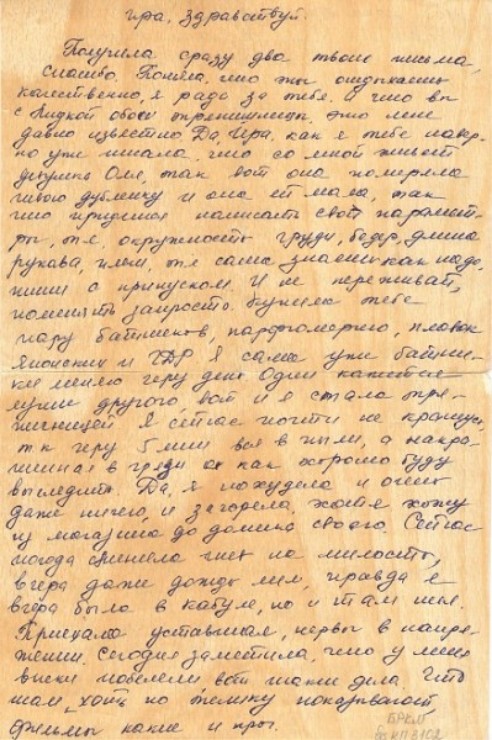 Ира, здравствуй.
Получила сразу два твоих письма,
спасибо. Поняла, что ты отдыхаешь
качественно, я рада за тебя. И что вы
с Лидкой обои трепишницы, это мне
давно известно. Да, Ира, как я тебе навер-
но уже писала, что со мной живет
девушка Оля, так вот она померяла
твою дубленку и она ей мала, так
что придется написать свои парамет-
ры, т.е. окружность груди, бедер, длина
рукава, плеч, т.е сама знаешь как надо,
пиши с припуском. И не переживай,
поменять запросто. Купила тебе
пару батников, парфюмерию, плавок
Японских и ГДР. Я сама уже батни-
ки меняю через день. Один кажется
лучше другого, вот и я стала тря-
пичницей. Я сейчас почти не крашусь,
тк через 5 мин вся в пыли, а накра-
шенная в грязи ох как хорошо буду
выглядить. Да, я похудела и очень
даже ничего, и загорела, хотя хожу
из магазина до домика своего. Сейчас
погода сменила гнев на милость,
вчера даже дождь лил, правда я
вчера была в Кабуле, но и там лил.
Приехала уставшая, нервы в напря-
жении. Сегодня заметила, что у меня
виски побелели вот такие дела. Что
там хоть по телику показывают,
фильмы какие и проч.
БРКМ
КП 3102